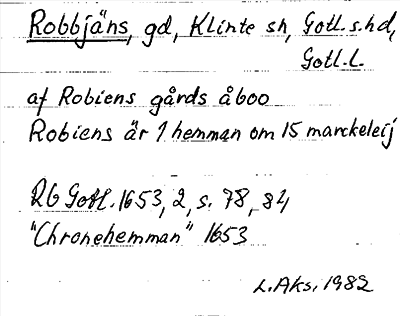 Robbjäns, gd, Klinte sn, Gotl. s. hd,
Gotl. l.
af Robiens gårds åboo
Robiens är 1 hemman om 15 marckeleij
RG Gotl. 1653, 2, s. 78, 84
"Chronehemman" 1653
L. Aks. 1982